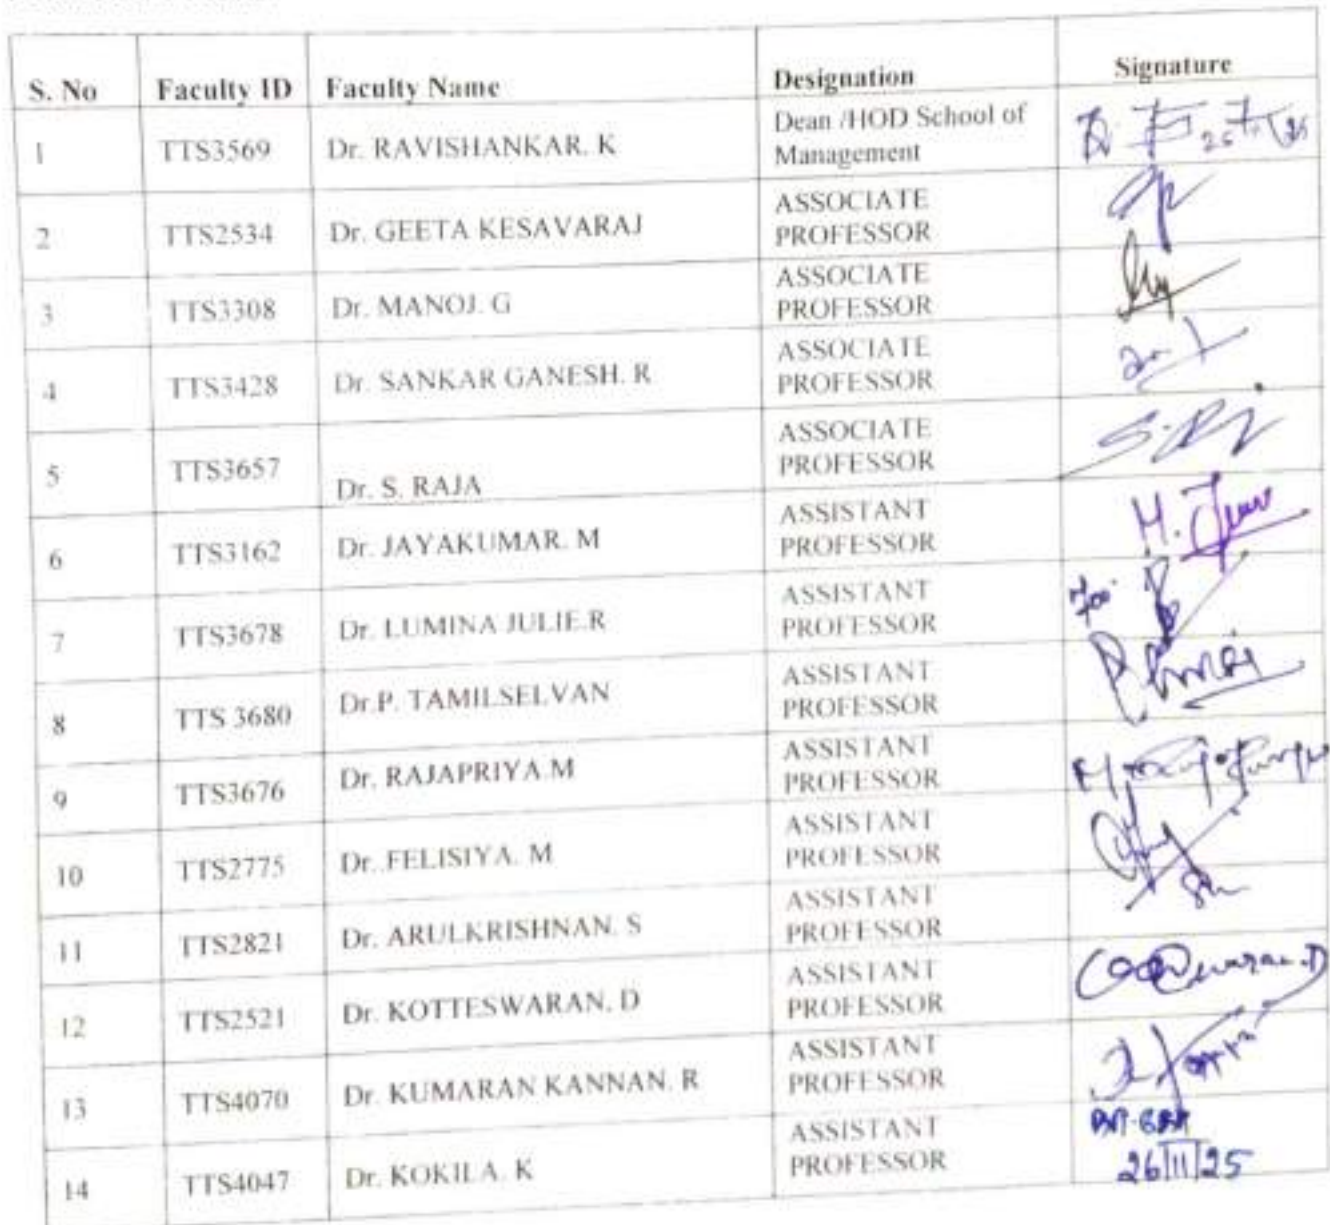 S. No Faculty ID Faculty Name Designation Signature
1 TTS3569 Dr. RAVISHANKAR. K Dean /HOD School of
Management
2 TTS2534 Dr. GEETA KESAVARAJ ASSOCIATE
PROFESSOR
3 TTS3308 Dr. MANOJ. G ASSOCIATE
PROFESSOR
4 TTS3428 Dr. SANKAR GANESH. R ASSOCIATE
PROFESSOR
5 TTS3657 Dr. S. RAJA ASSOCIATE
PROFESSOR
6 TTS3162 Dr. JAYAKUMAR. M ASSISTANT
PROFESSOR
7 TTS3678 Dr. LUMINA JULIE.R ASSISTANT
PROFESSOR
8 TTS 3680 Dr.P. TAMILSELVAN ASSISTANT
PROFESSOR
9 TTS3676 Dr. RAJAPRIYA.M ASSISTANT
PROFESSOR
10 TTS2775 Dr. FELISIYA. M ASSISTANT
PROFESSOR
11 TTS2821 Dr. ARULKRISHNAN. S ASSISTANT
PROFESSOR
12 TTS2521 Dr. KOTTESWARAN. D ASSISTANT
PROFESSOR
13 TTS4070 Dr. KUMARAN KANNAN. R ASSISTANT
PROFESSOR
14 TTS4047 Dr. KOKILA. K ASSISTANT
PROFESSOR 26/11/25